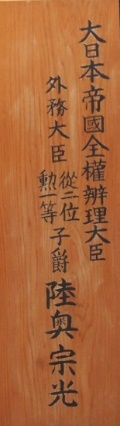 大日本帝國全權辨理大臣
外務大臣
從二位
勲一等
子爵
陸奥宗光